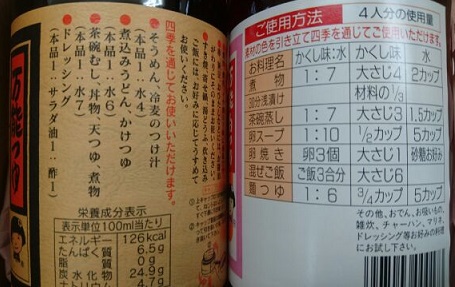 四季を通じてお使いいただけます。
●そうめん、冷麦のつけ汁
（本品1：水4）
●煮込みうどん、かけつゆ
（本品1：水6）
●茶碗むし、丼物、天つゆ、煮物
（本品1：水7）
●ドレッシング
（本品1：サラダ油1：酢1）
万能つゆ
栄養成分表示
表示単位100ml当たり
エネルギー 126kcal
たんぱく質 6.5g
脂質 0g
炭水化物 24.9g
ナトリウム 4.7g
ご使用方法 4人分の使用量
素材の色を引き立て四季を通じてご使用いただけます。
お料理名 かくし味:水 かくし味 水
煮物 1:7 大さじ4 2カップ
30分浅漬け 材料の1/3
茶碗蒸し 1:7 大さじ3 1.5カップ
卵スープ 1:10 1/2カップ 5カップ
卵焼き 卵3個 大さじ1 砂糖お好み
混ぜご飯 ご飯3合分 大さじ6
麺つゆ 1:6 3/4カップ 5カップ
その他、おでん、お吸いもの、
雑炊、チャーハン、マリネ、
ドレッシング等お好みの料理
にお試し下さい。